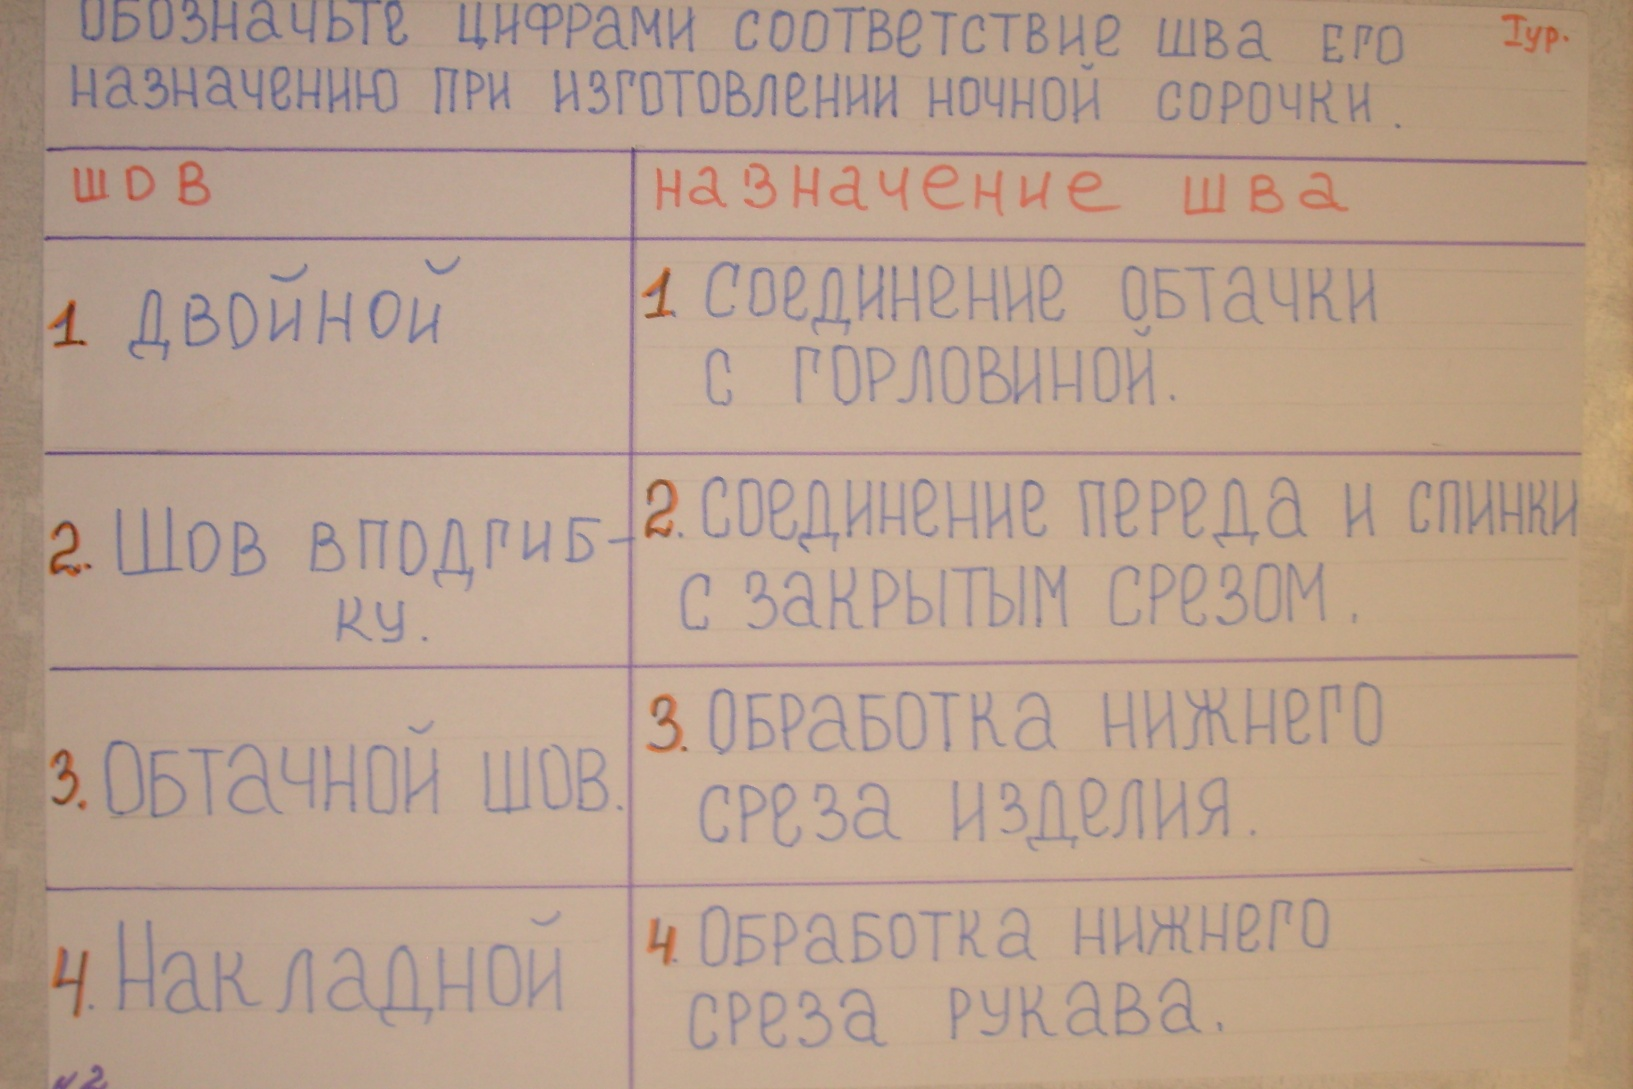 Обозначьте цифрами соответствие шва его
Iур.
назначению при изготовлении ночной сорочки.
шов
назначение шва
1 двойной
1 Соединение обтачки
с горловиной.
2. Шов вподгиб-
ку.
2. Соединение переда и спинки
с закрытым срезом.
3. Обтачной шов.
3. Обработка нижнего
среза изделия.
4. Накладной
4 Обработка нижнего
среза рукава.